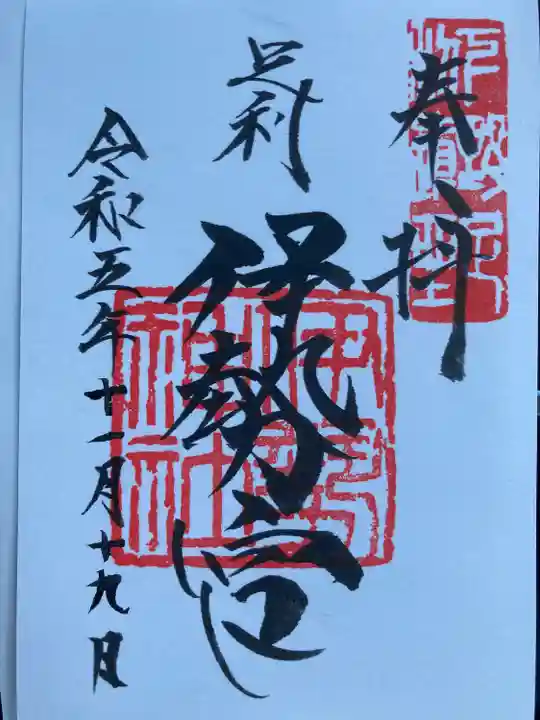 奉拝
足利
伊勢宮
令和五年十一月十九日
伊勢神社